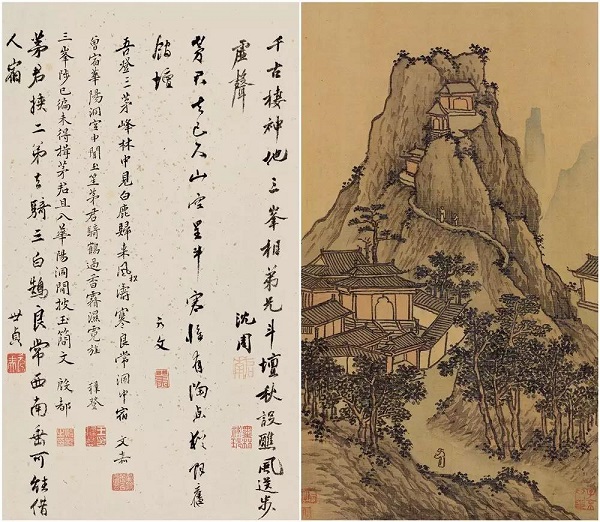 千古棲神地三峯相弟兄斗壇秋設醮風送步
虛聲
沈周
茅君去已久山空星斗寒惟有陶
鶴壇
吾登三茅峰林中見白鹿歸來風
松
濤寒良常洞中宿 文嘉
曾宿華陽洞空中聞玉笙茅君騎鶴過香霧濕霓旌 穉登
三峯陟已徧未得揖茅君且入華陽洞閒披玉簡文 殷都
茅君挾二弟去騎三白鵠良常西南垂可能借
人宿
世貞